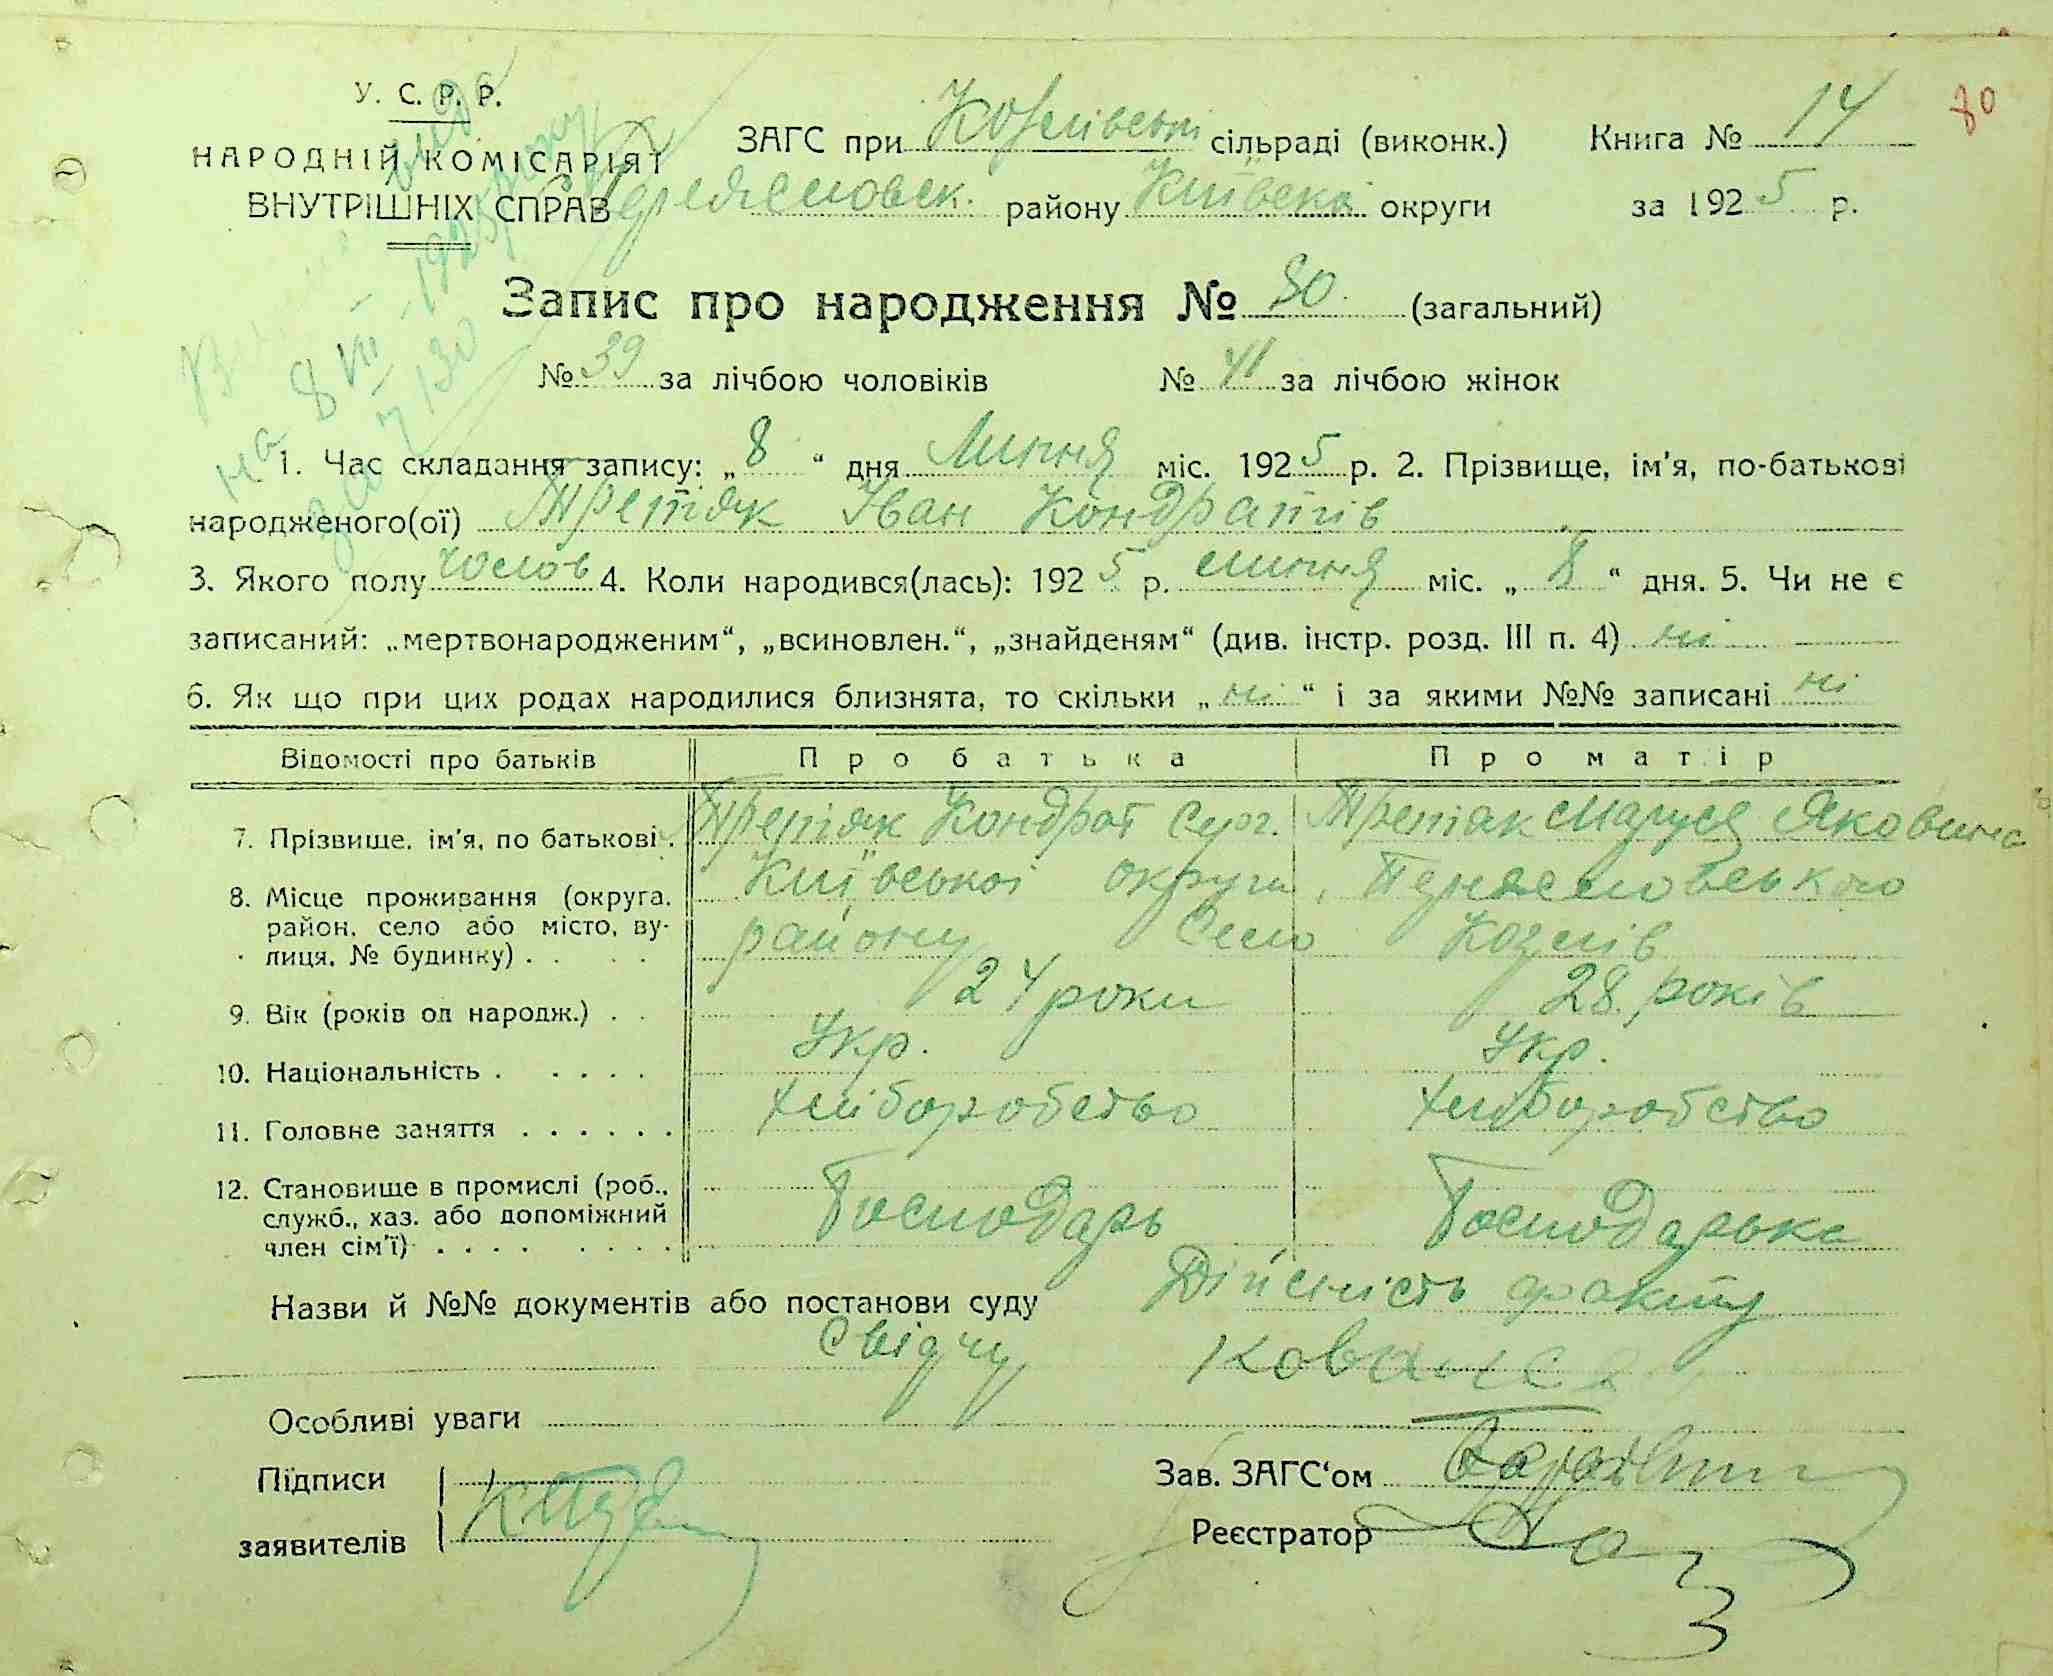 У. С. Р. Р.
НАРОДНІЙ КОМІСАРІЯТ
ВНУТРІШНІХ СПРАВ
ЗАГС при Козлівські сільраді (виконк.) Книга № 14
80
Переясловськ. району Київської округи за 1925 р.
Запис про народження № 80. (загальний)
№ 39 за лічбою чоловіків № 41 за лічбою жінок
на 8 VII – 192
1. Час складання запису: „8“ дня Липня міс. 1925 р. 2. Прізвище, ім'я, по-батькові
народженого(ої) Третяк Іван Кондратів
3. Якого полу чолов 4. Коли народився(лась): 1925 р. липня міс. „8“ дня. 5. Чи не є
записаний: „мертвонародженим“, „всиновлен.“, „знайденям“ (див. інстр. розд. III п. 4) ні
6. Як що при цих родах народилися близнята, то скільки „ні“ і за якими №№ записані ні
Відомості про батьків Про батька Про матір
7. Прізвище, ім'я, по батькові. Третяк Кондрат Третяк Маруся Яковина
8. Місце проживання (округа, район, село або місто, ву-
лиця, № будинку) . . . . Київської округи, Переясловського
району Село Козлів
9. Вік (років од народж.) . . 24 роки 28 років
10. Національність . . . . . Укр. Укр.
11. Головне заняття . . . . . . хліборобство хліборобство
12. Становище в промислі (роб.,
служб., хаз. або допоміжний
член сім'ї) . . . . . . . . Господарь Господарька
Назви й №№ документів або постанови суду Дійсність факту
Свідчу
Особливі уваги
Підписи
заявителів
Зав. ЗАГС'ом
Реєстратор